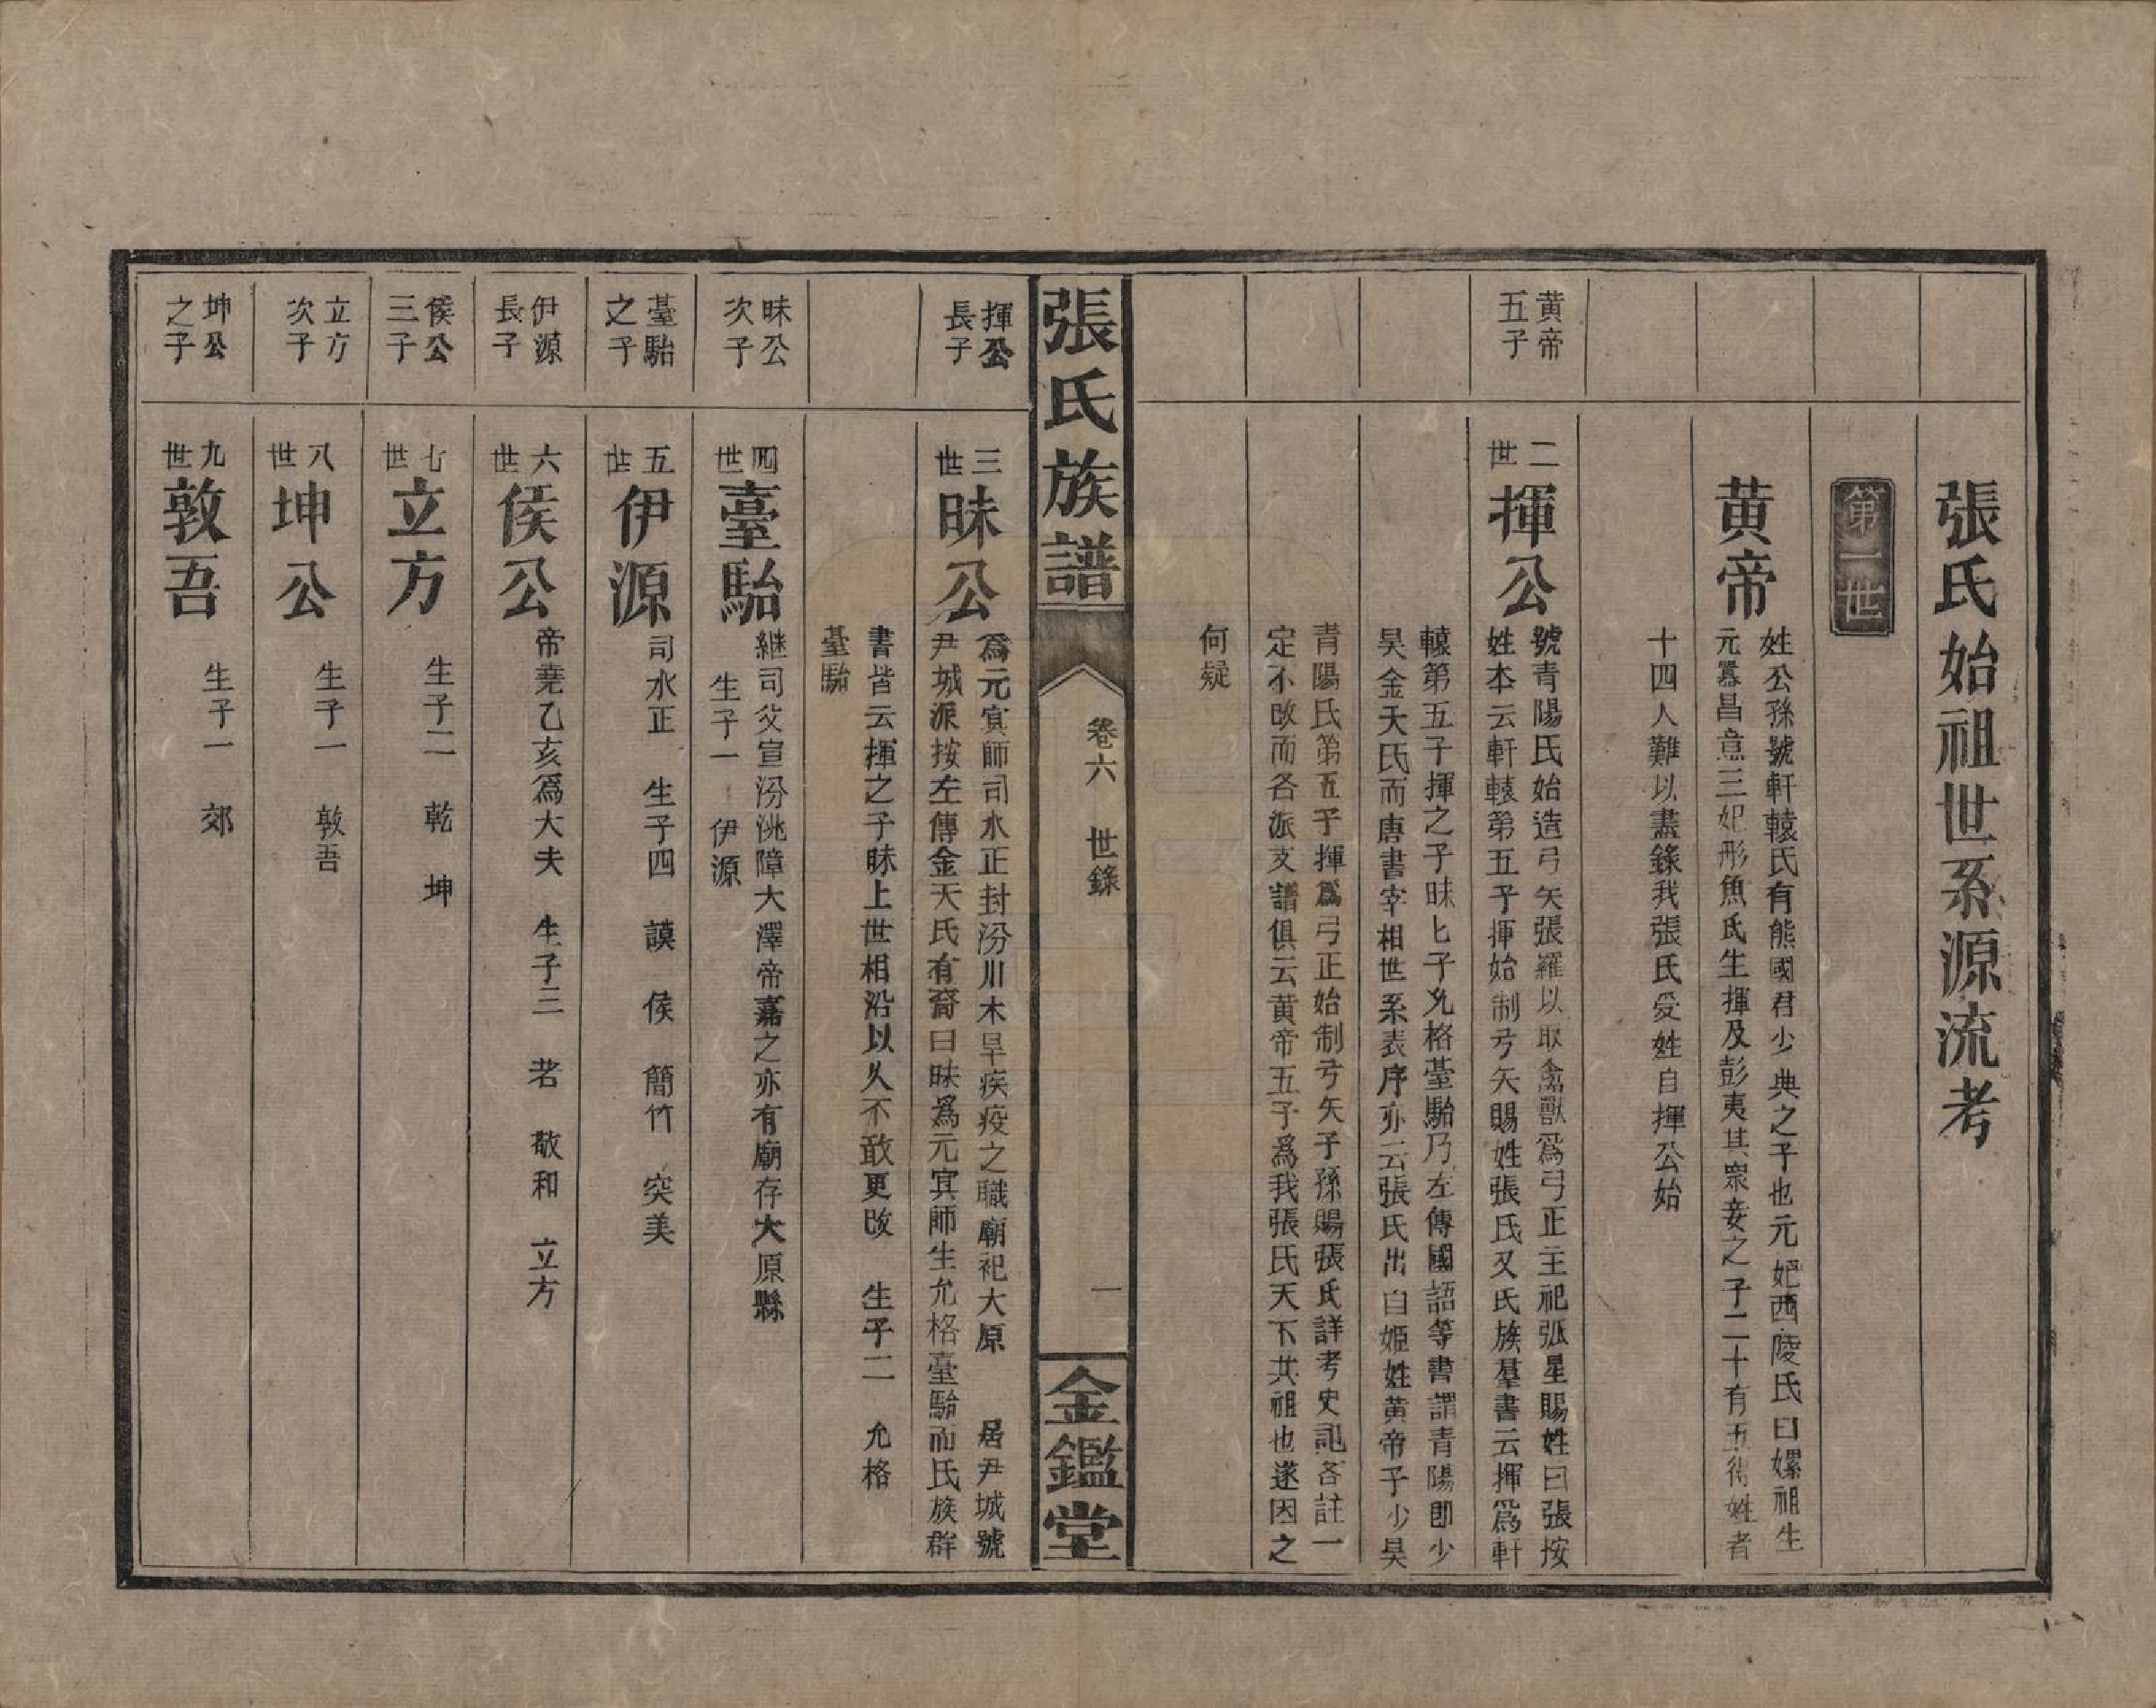 張氏始祖世系源流考
第一世
黄帝
姓公孫號軒轅氏有熊國君少典之子也元妃西陵氏曰嫘祖生
元囂昌意三妃彤魚氏生揮及彭夷其衆妾之子二十有五得姓者
十四人難以盡錄我張氏受姓自揮公始
黄帝
五子
二
世
揮公
號青陽氏始造弓矢張羅以取禽獸爲弓正主祀弧星賜姓曰張按
姓本云軒轅第五子揮始制弓矢賜姓張氏又氏族羣書云揮爲軒
轅第五子揮之子昧七子允格臺駘乃左傳國語等書謂青陽即少
昊金天氏而唐書宰相世系表序亦云張氏出自姬姓黄帝子少昊
青陽氏第五子揮爲弓正始制弓矢子孫賜張氏詳考史記各註一
定不改而各派支譜俱云黄帝五子爲我張氏天下共祖也遂因之
何疑
張氏族譜
卷六 世錄
一
金鑑堂
揮公
長子
三
世
昧公
爲元㝠師司水正封汾川木旱疾疫之職廟祀大原 居尹城號
尹城派按左傳金天氏有裔曰昧爲元㝠師生允格臺駘而氏族群
書皆云揮之子昧上世相沿以久不敢更改 生子二 允格
臺駘
昧公
次子
四
世
臺駘
継司父宣汾洮障大澤帝嘉之亦有廟存大原縣
生子一 伊源
臺駘
之子
五
世
伊源
司水正 生子四 謨 侯 簡竹 突美
伊源
長子
六
世
侯公
帝堯乙亥爲大夫 生子三 老 敬和 立方
侯公
三子
七
世
立方
生子二 乾 坤
立方
次子
八
世
坤公
生子一 敦吾
坤公
之子
九
世
敦吾
生子一 郊